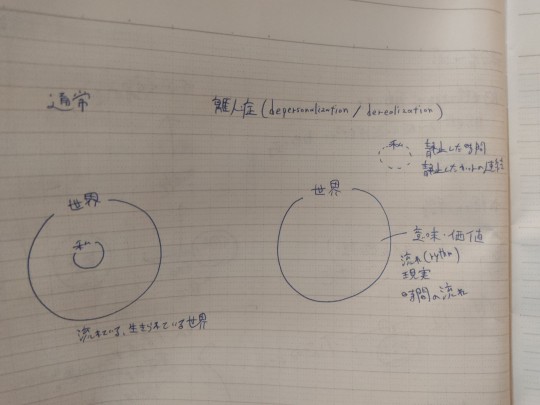 通常
離人症 (depersonalization / derealization)
私
静止した時間
静止したカットの連続
世界
私
流れている、生きられている世界
世界
意味・価値
流れ (rythm)
現実
時間の流れ